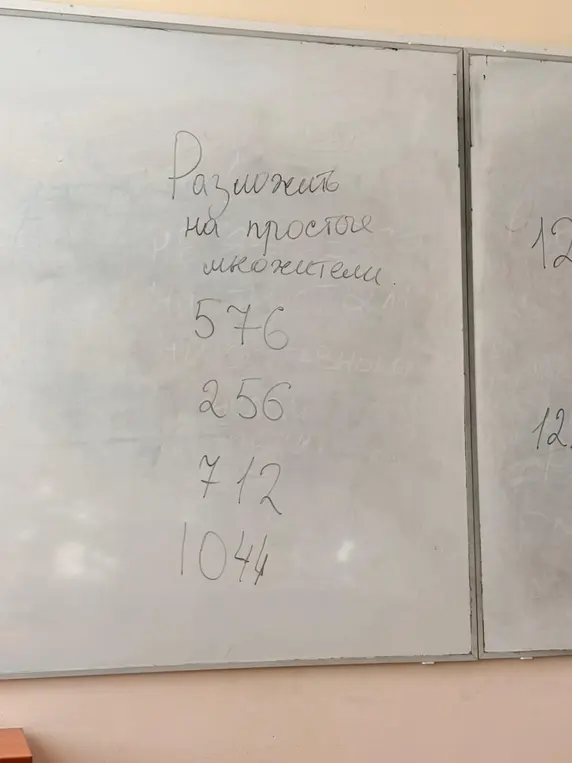 Разложить
на простые
множители.
576
256
712
1044
12
12.